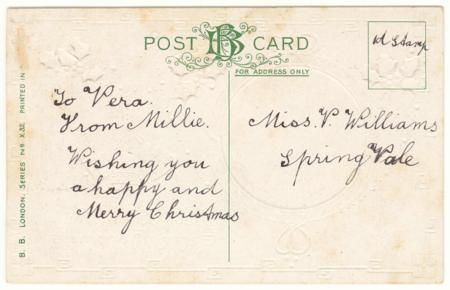 POST BB CARD
FOR ADDRESS ONLY
To Vera.
From Millie.
Wishing you
a happy and
Merry Christmas
Miss. V. Williams
Spring Vale
B. B. LONDON. SERIES No X.32. PRINTED IN